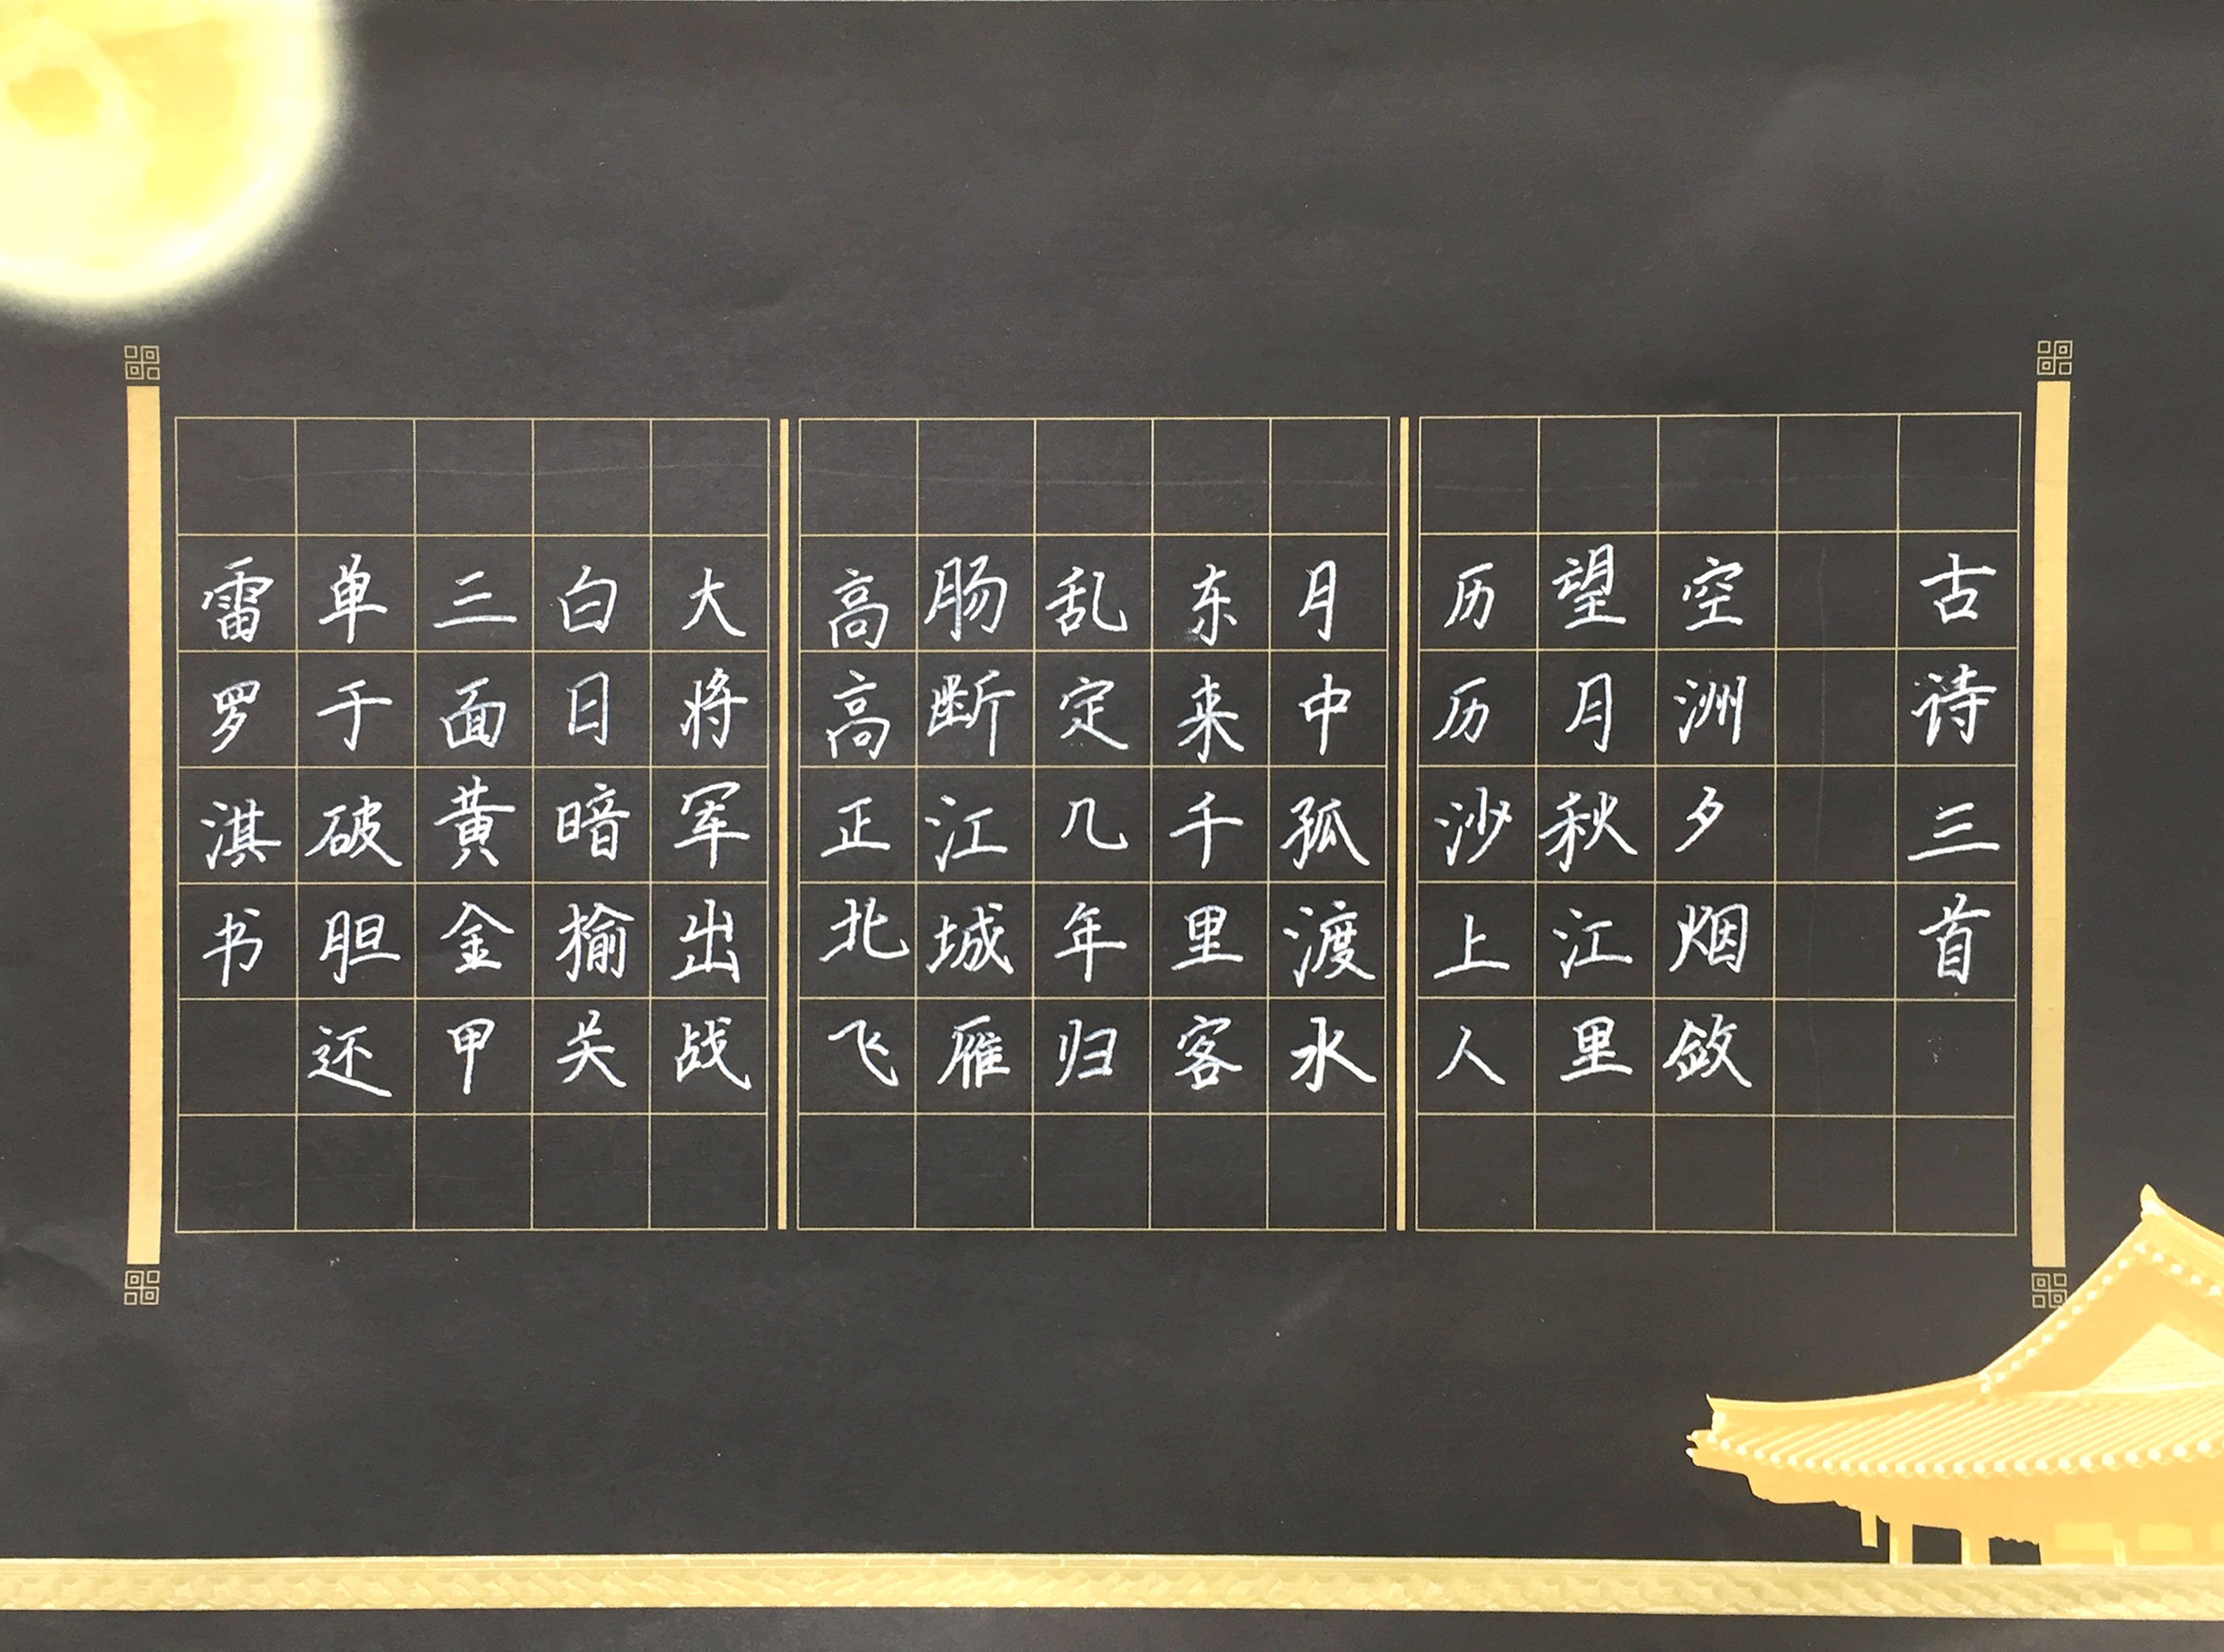 古诗三首
空洲夕烟敛
望月秋江里
历历沙上人
月中孤渡水
东来千里客
乱定几年归
肠断江城雁
高高正北飞
大将军出战
白日暗榆关
三面黄金甲
单于破胆还
雷罗淇书